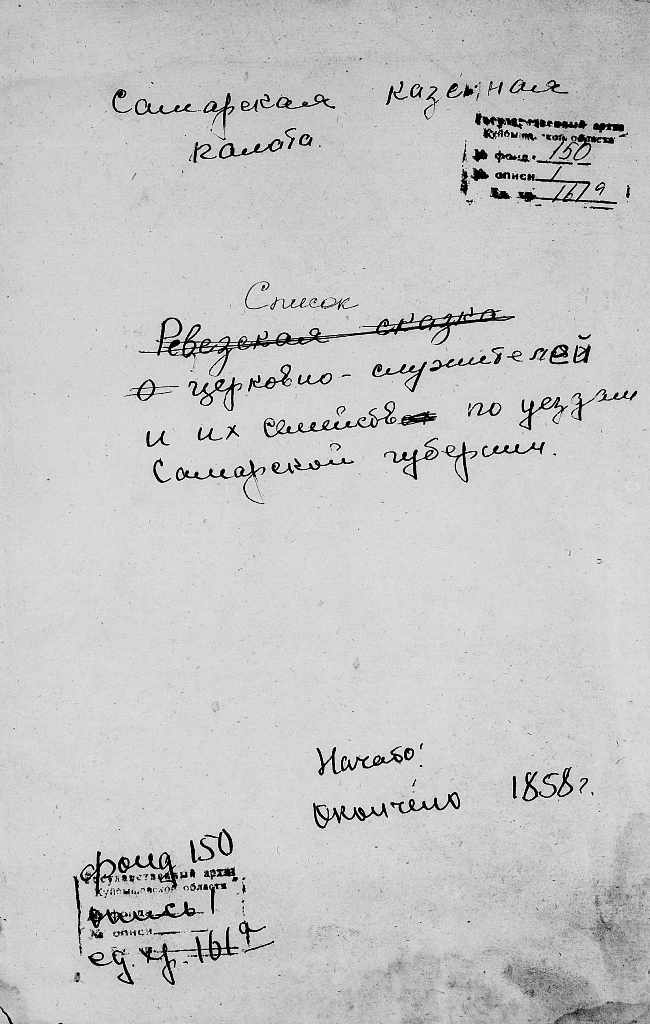 Самарская казенная
палата.
Государственный архив
Куйбышевской области
№ фонд. 150
№ описи 1
Ед. хр. 161а
Список
Ревезская сказка
О церковно-служителей
и их семейств по уездам
Самарской губернии.
Начато:
Окончено 1858 г.
фонд 150
Государственный архив
Куйбышевской области
опись 1
№ описи
ед. хр. 161а